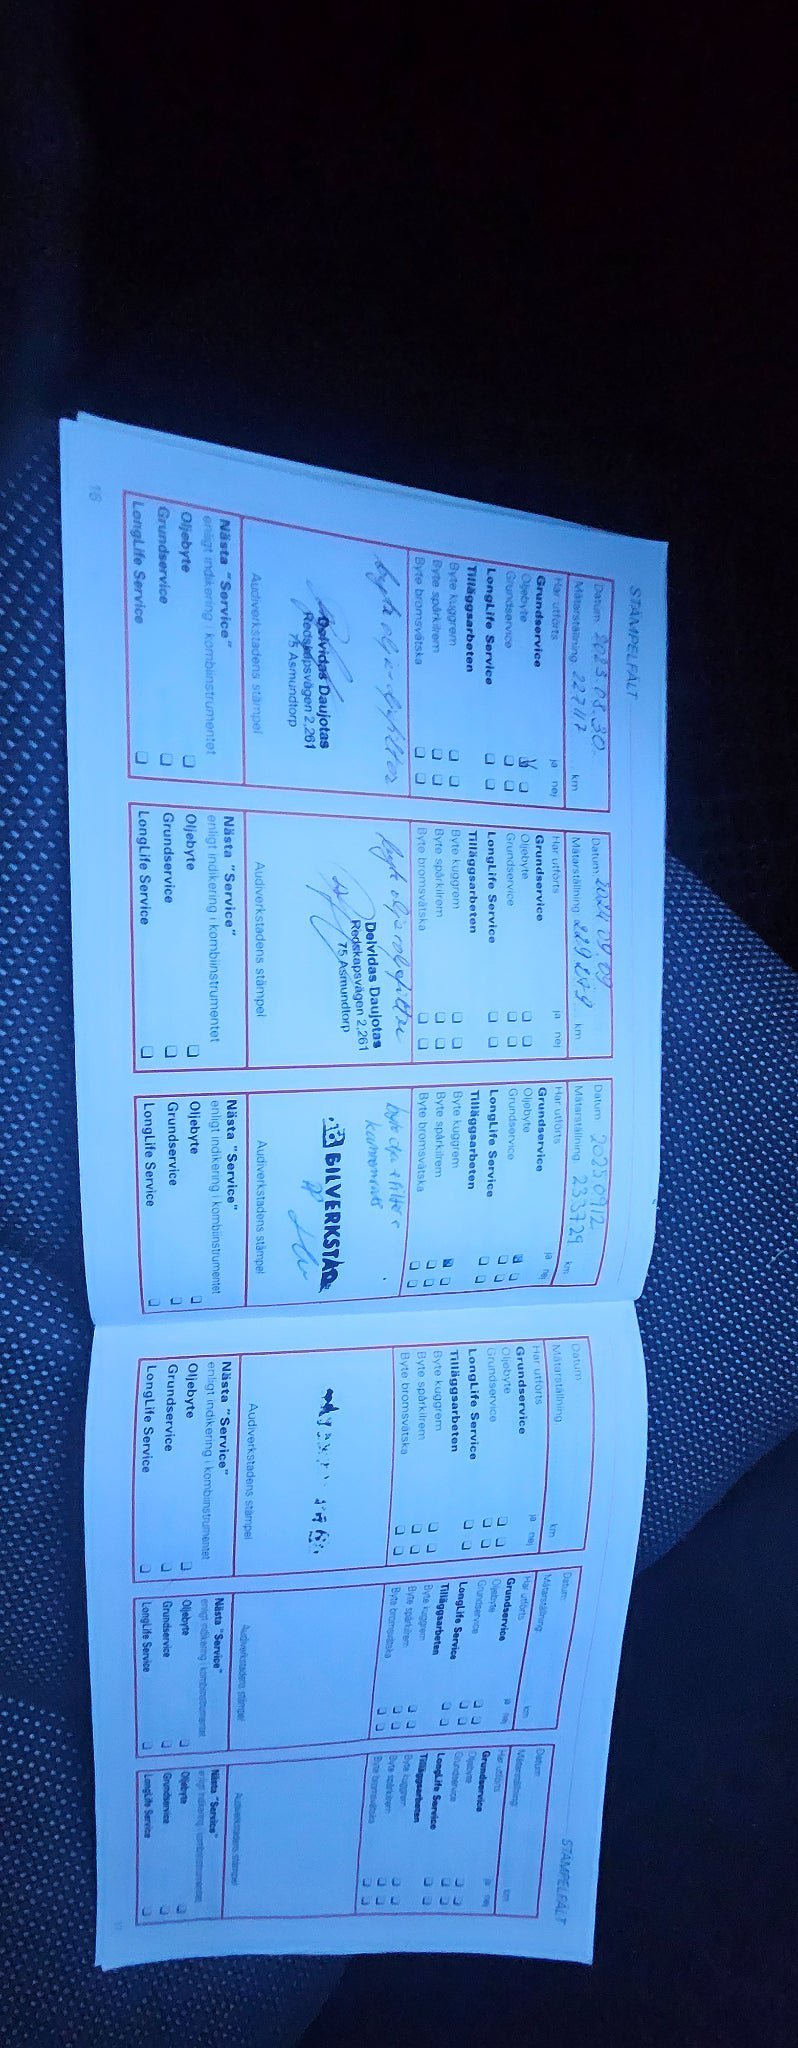 STÄMPELFÄLT
Datum: 2023.08.30.
Mätarställning: 227117 km
Har utförts ja nej
Grundservice
Oljebyte
Grundservice
LongLife Service
Tilläggsarbeten
Byte kuggrem
Byte spårkilrem
Byte bromsvätska
Delvidas Daujotas
Redskapsvägen 2,261
75 Asmundtorp
Audiverkstadens stämpel
Nästa "Service"
enligt indikering i kombiinstrumentet
Oljebyte
Grundservice
LongLife Service
16
Datum: 2024.09.09
Mätarställning: 229249 km
Har utförts ja nej
Grundservice
Oljebyte
Grundservice
LongLife Service
Tilläggsarbeten
Byte kuggrem
Byte spårkilrem
Byte bromsvätska
Delvidas Daujotas
Redskapsvägen 2,261
75 Asmundtorp
Audiverkstadens stämpel
Nästa "Service"
enligt indikering i kombiinstrumentet
Oljebyte
Grundservice
LongLife Service
Datum: 20250912
Mätarställning: 233729 km
Har utförts ja nej
Grundservice
Oljebyte
Grundservice
LongLife Service
Tilläggsarbeten
Byte kuggrem
Byte spårkilrem
Byte bromsvätska
byte olja + filter +
kamremsats
BILVERKSTAD
Audiverkstadens stämpel
Nästa "Service"
enligt indikering i kombiinstrumentet
Oljebyte
Grundservice
LongLife Service
Datum:
Mätarställning: km
Har utförts ja nej
Grundservice
Oljebyte
Grundservice
LongLife Service
Tilläggsarbeten
Byte kuggrem
Byte spårkilrem
Byte bromsvätska
Audiverkstadens stämpel
Nästa "Service"
enligt indikering i kombiinstrumentet
Oljebyte
Grundservice
LongLife Service
Datum:
Mätarställning: km
Har utförts ja nej
Grundservice
Oljebyte
Grundservice
LongLife Service
Tilläggsarbeten
Byte kuggrem
Byte spårkilrem
Byte bromsvätska
Audiverkstadens stämpel
Nästa "Service"
enligt indikering i kombiinstrumentet
Oljebyte
Grundservice
LongLife Service
STÄMPELFÄLT
Datum:
Mätarställning: km
Har utförts ja nej
Grundservice
Oljebyte
Grundservice
LongLife Service
Tilläggsarbeten
Byte kuggrem
Byte spårkilrem
Byte bromsvätska
Audiverkstadens stämpel
Nästa "Service"
enligt indikering i kombiinstrumentet
Oljebyte
Grundservice
LongLife Service